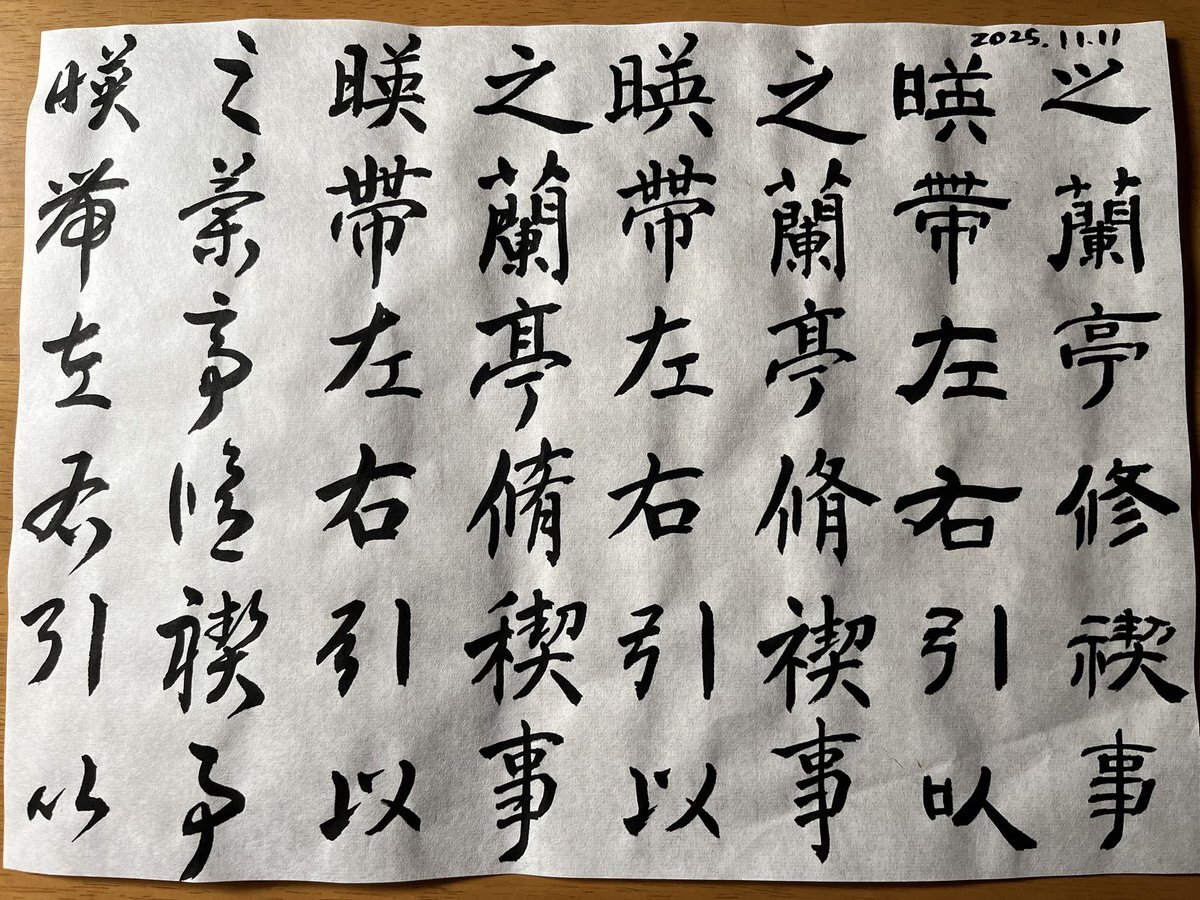 2025.11.11
之蘭亭修禊事
暎帶左右引以
之蘭亭脩禊事
暎帶左右引以
之蘭亭脩稧事
暎帶左右引以
之蘭亭脩禊事
暎帶左右引以